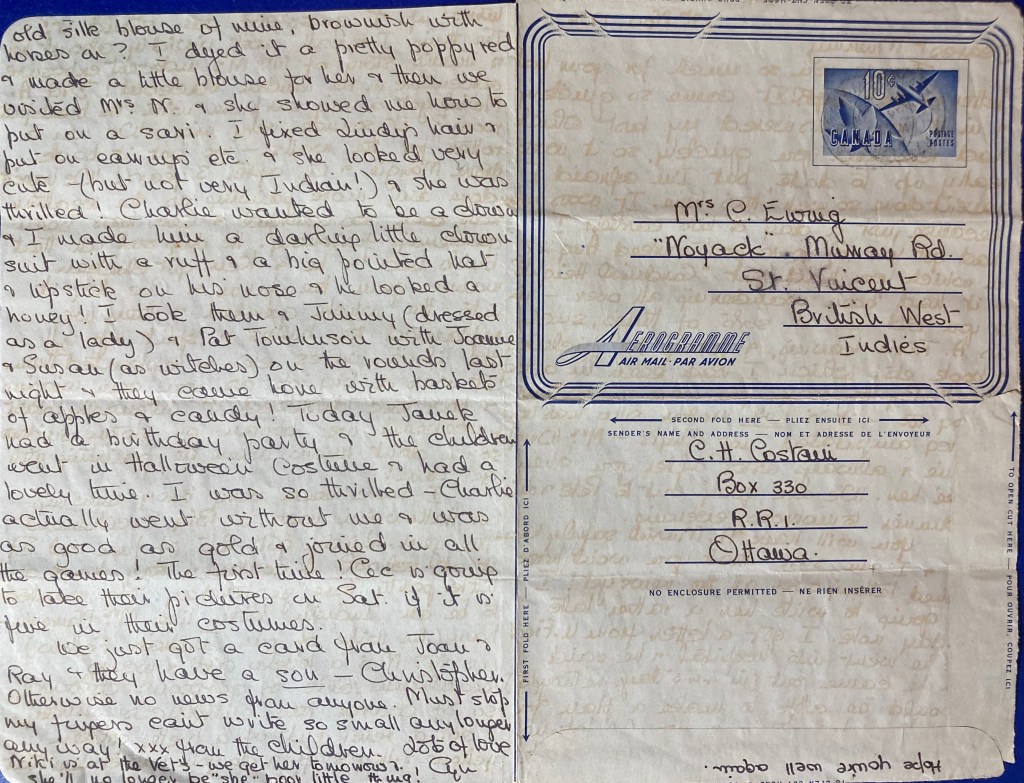 old silk blouse of mine, brownish with
horses on? I dyed it a pretty poppy red
& made a little blouse for her & then we
visited Mrs N. & she showed me how to
put on a sari. I fixed Lindy's hair &
put on earrings etc. & she looked very
cute - (but not very Indian!) & she was
thrilled! Charlie wanted to be a clown
& I made him a darling little clown
suit with a ruff & a big pointed hat
& lipstick on his nose & he looked a
honey! I took them & Jimmy (dressed
as a lady) & Pat Tomlinson with Joanne
& Susan (as witches) on the rounds last
night & they came home with baskets
of apples & candy! Today Janek
had a birthday party & the children
went in Halloween Costume & had a
lovely time. I was so thrilled - Charlie
actually went without me & was
as good as gold & joined in all
the games! The first time! Cec is going
to take their pictures on Sat. if it is
fine in their costumes.
We just got a card from Joan &
Ray & they have a son - Christopher.
Otherwise no news from anyone. Must stop
my fingers can't write so small any longer
any way! xxx from the children. Lots of love
Niki is at the Vet's - we get her tomorrow.
she'll no longer be "she" poor little thing!
10¢
CANADA
POSTAGE
POSTES
Mrs C. Ewing
"Noyack". Murray Rd.
St. Vincent
British West
Indies
AEROGRAMME
AIR MAIL · PAR AVION
SECOND FOLD HERE — PLIEZ ENSUITE ICI
SENDER'S NAME AND ADDRESS — NOM ET ADRESSE DE L'ENVOYEUR
C.H. Costain
Box 330
R.R.1.
Ottawa.
NO ENCLOSURE PERMITTED — NE RIEN INSÉRER
FIRST FOLD HERE — PLIEZ D'ABORD ICI
TO OPEN CUT HERE — POUR OUVRIR, COUPEZ ICI
Hope you're well again.